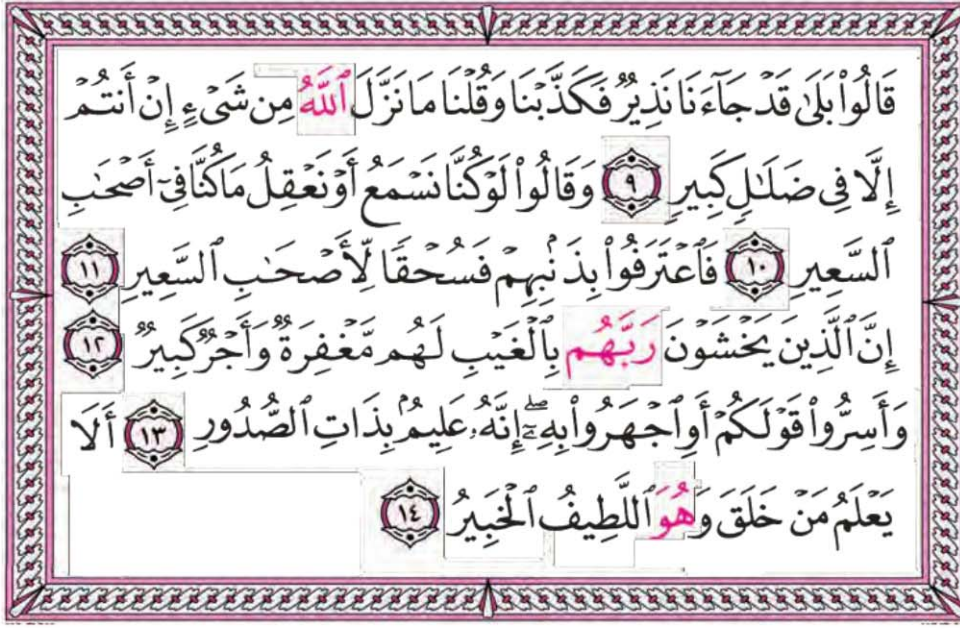 قَالُوا۟ بَلَىٰ قَدۡ جَآءَنَا نَذِيرٌ فَكَذَّبۡنَا وَقُلۡنَا مَا نَزَّلَ ٱللَّهُ مِن شَىۡءٍ إِنۡ أَنتُمۡ
إِلَّا فِى ضَلَٰلٍ كَبِيرٍ ٩ وَقَالُوا۟ لَوۡ كُنَّا نَسۡمَعُ أَوۡ نَعۡقِلُ مَا كُنَّا فِىٓ أَصۡحَٰبِ
ٱلسَّعِيرِ ١٠ فَٱعۡتَرَفُوا۟ بِذَنۢبِهِمۡ فَسُحۡقًا لِّأَصۡحَٰبِ ٱلسَّعِيرِ ١١
إِنَّ ٱلَّذِينَ يَخۡشَوۡنَ رَبَّهُم بِٱلۡغَيۡبِ لَهُم مَّغۡفِرَةٌ وَأَجۡرٌ كَبِيرٌ ١٢
وَأَسِرُّوا۟ قَوۡلَكُمۡ أَوِ ٱجۡهَرُوا۟ بِهِۦٓۖ إِنَّهُۥ عَلِيمُۢ بِذَاتِ ٱلصُّدُورِ ١٣ أَلَا
يَعۡلَمُ مَنۡ خَلَقَ وَهُوَ ٱللَّطِيفُ ٱلۡخَبِيرُ ١٤